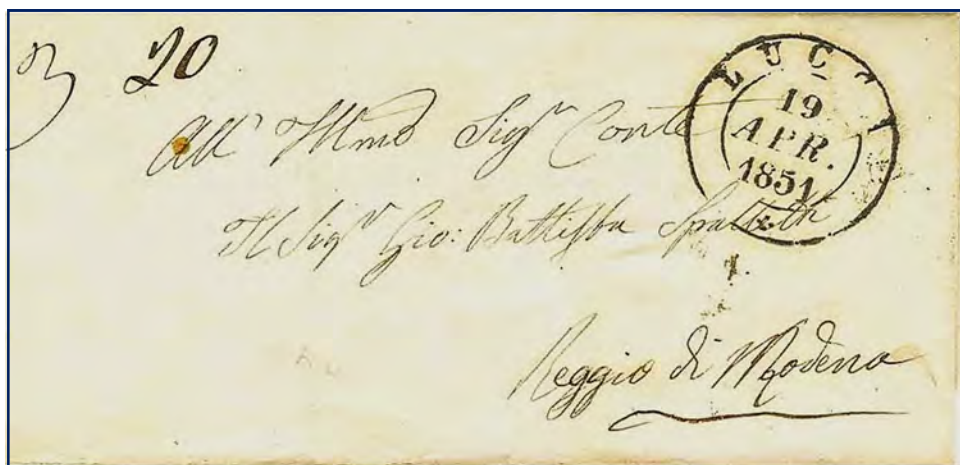 20
LUCCA
19
APR.
1851
All' Illmo Sigr Conte
Il Sigr Gio: Battista
Reggio di Modena